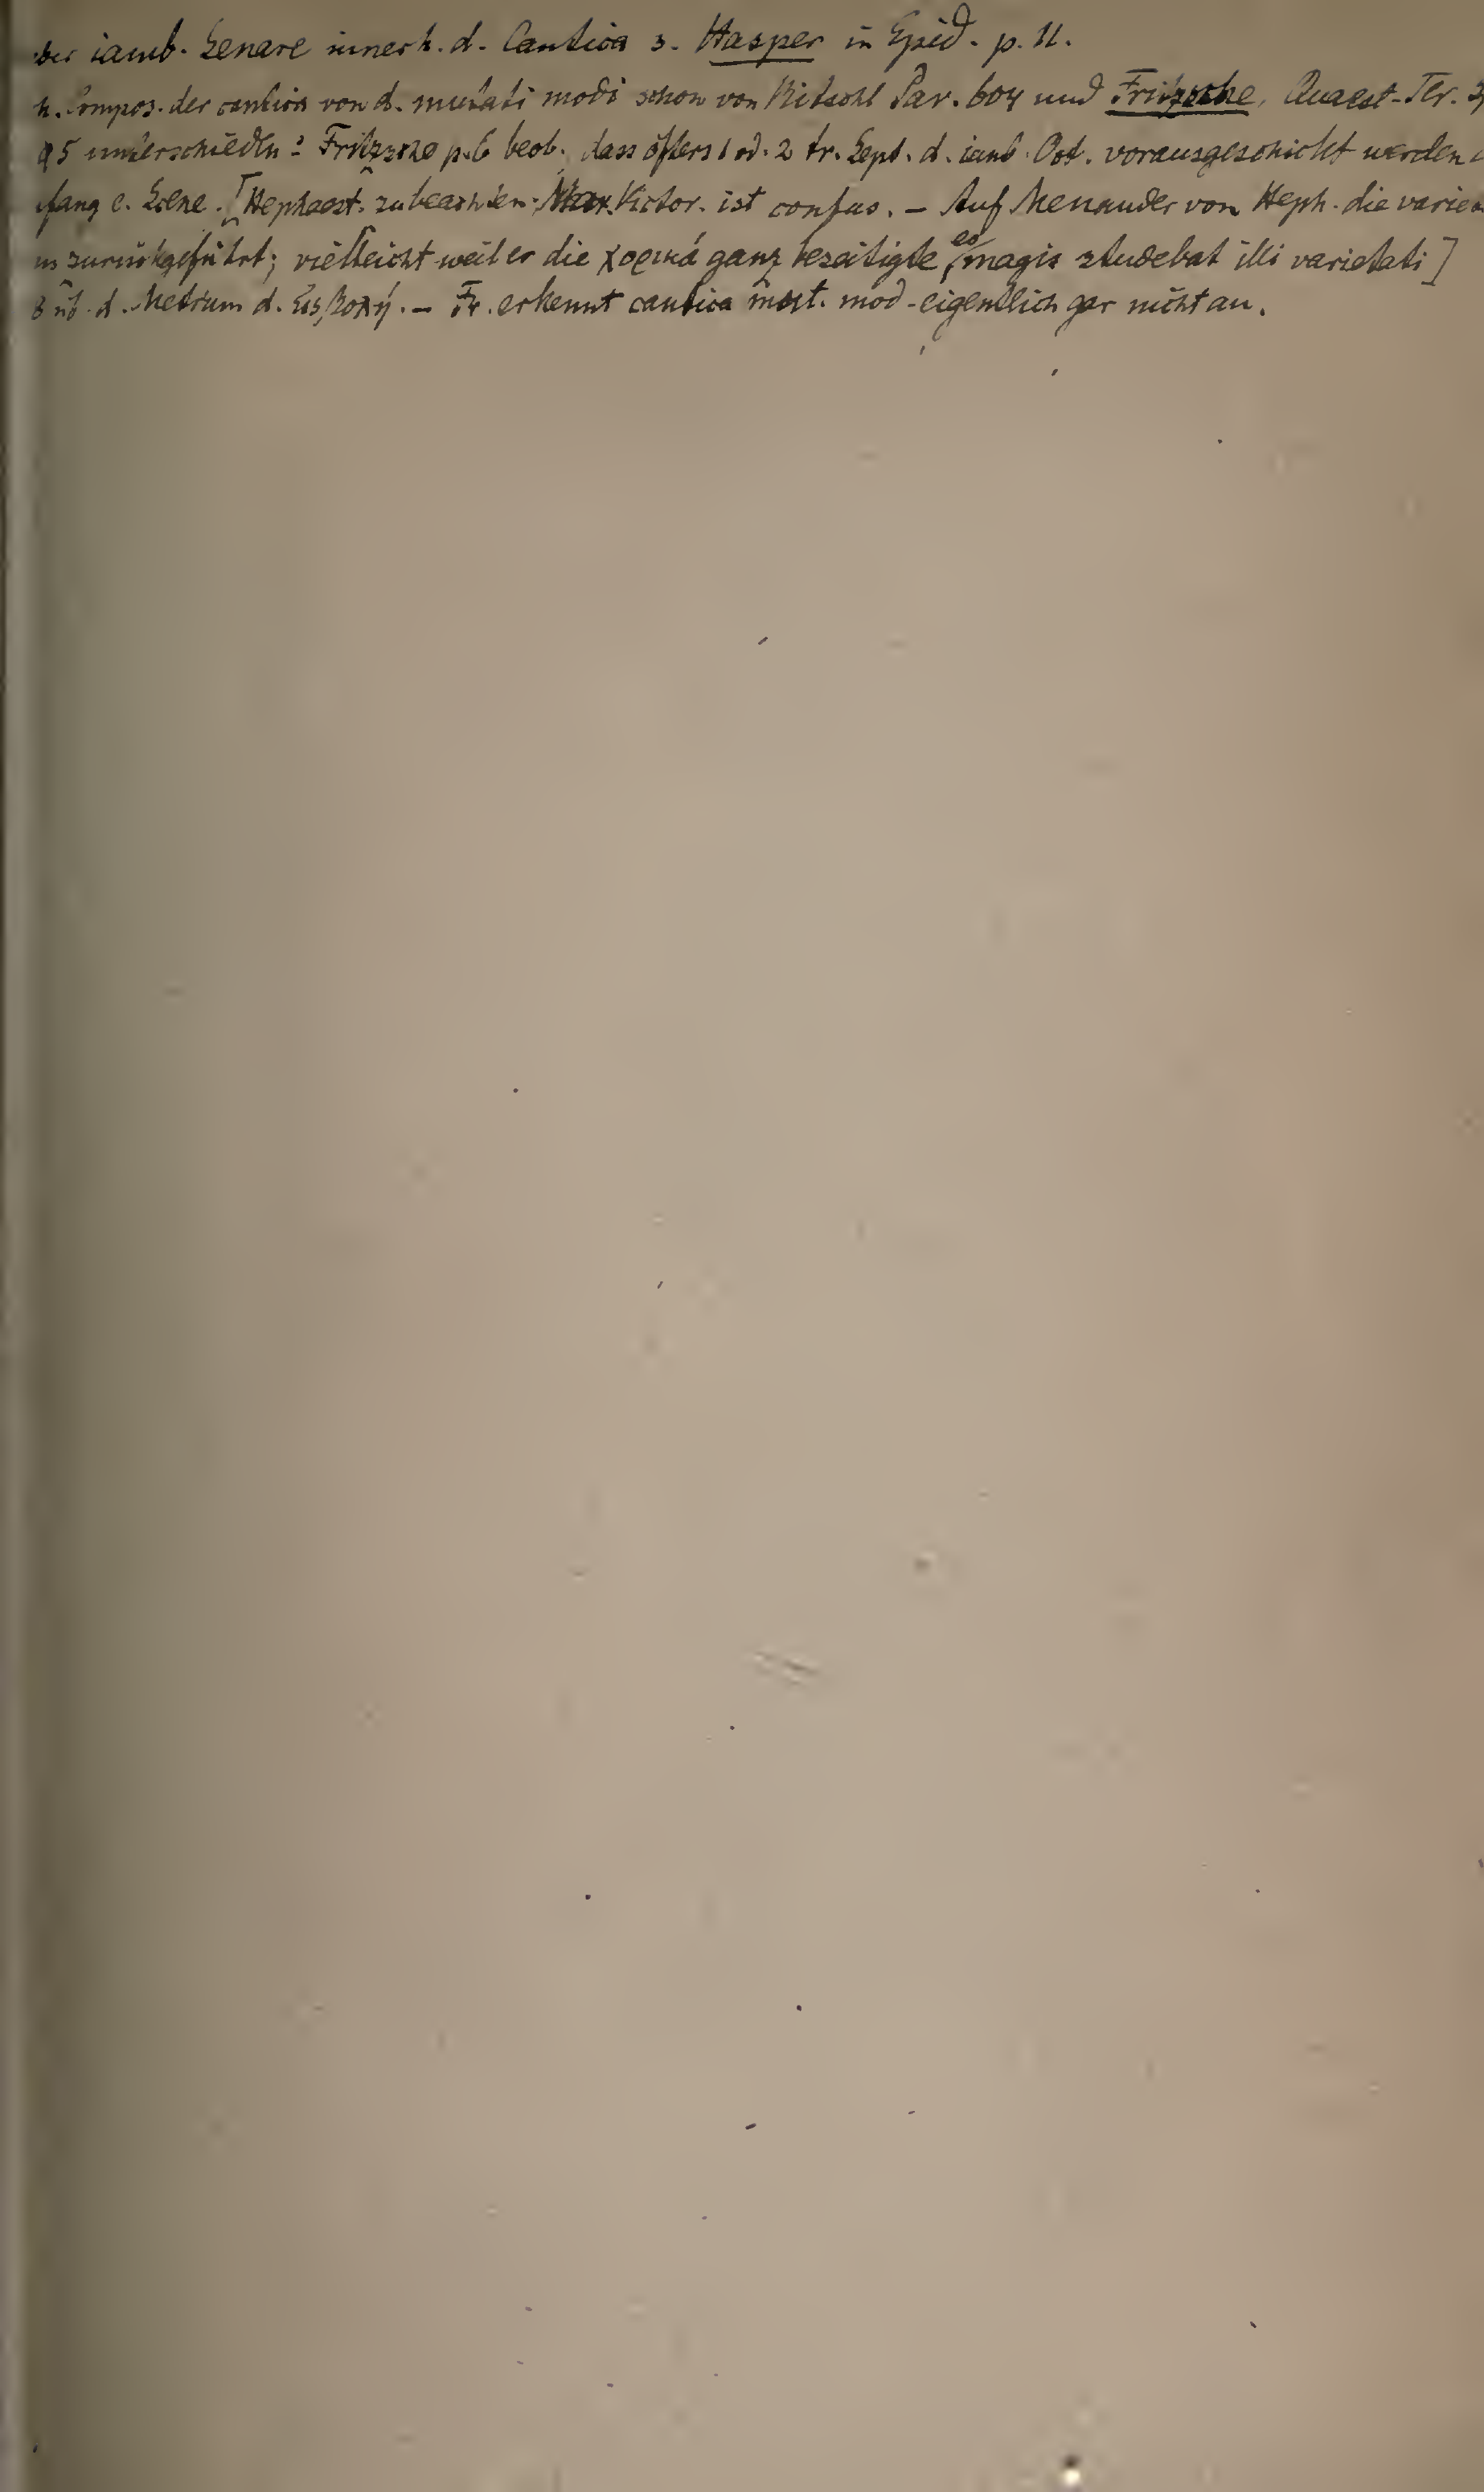 ber iamb. Senare innerh. d. Cantica s. Hasper in Epid. p. 11.
h. Compos. der cantica von d. mutati modi schon von Ritschl Par. 604 und Fritzsche, Quaest. Ter.
95 unterschieden: Fritzsche p. 6 beob. dass öfters 1 od. 2 tr. Sept. d. iamb. Oct. vorausgeschickt werden
fang e. Scene. [Hephaest. zu beachten. Mar. Victor. ist confus. – Auf Menander von Heph. die variet
zurückgeführt; vielleicht weil er die χορικά ganz beseitigte, eo magis studebat illi varietati]
üb. d. Metrum d. – Fr. erkennt cantica mut. mod. eigentlich gar nicht an.